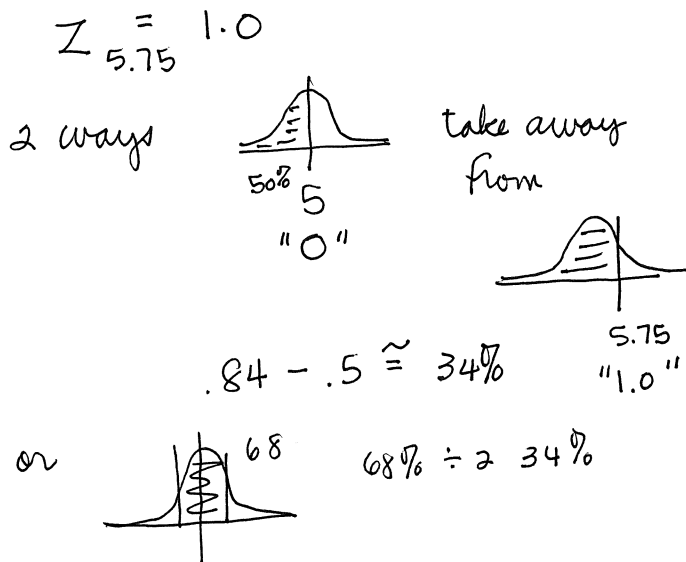 Z 5.75 = 1.0
2 ways
50%
5
"0"
take away
from
5.75
"1.0"
.84 - .5 ≅ 34%
or
68
68% ÷ 2 34%